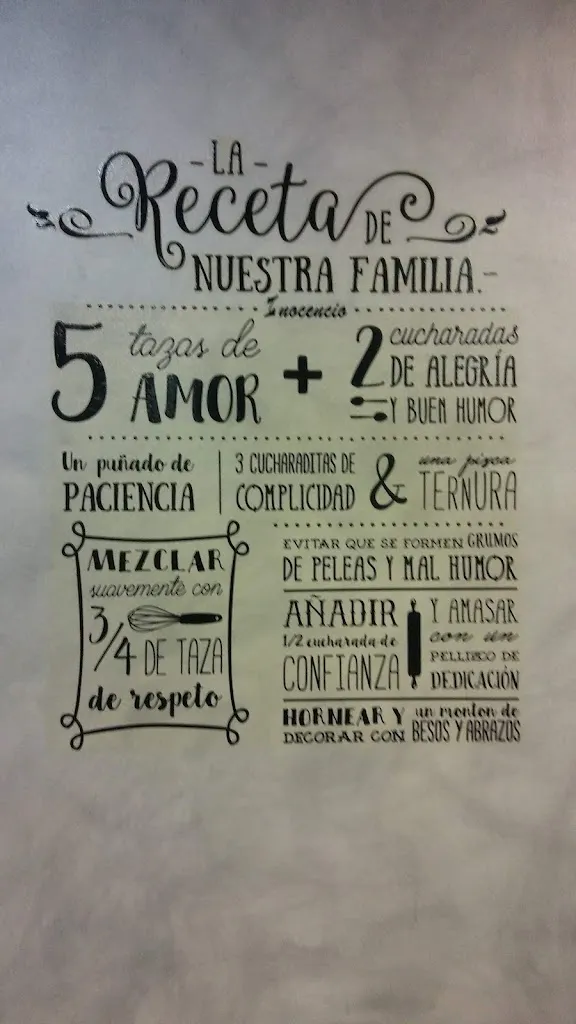 - LA -
Receta DE
NUESTRA FAMILIA.-
Inocencio
5 tazas de AMOR
+
2 cucharadas
DE ALEGRÍA
Y BUEN HUMOR
Un puñado de
PACIENCIA
3 CUCHARADITAS DE
COMPLICIDAD
&
una pizca
TERNURA
MEZCLAR
suavemente con
3/4 DE TAZA
de respeto
EVITAR QUE SE FORMEN GRUMOS
DE PELEAS Y MAL HUMOR
AÑADIR
1/2 cucharada de
CONFIANZA
Y AMASAR
con un
PELLIZCO DE
DEDICACIÓN
HORNEAR Y
DECORAR CON
un monton de
BESOS Y ABRAZOS